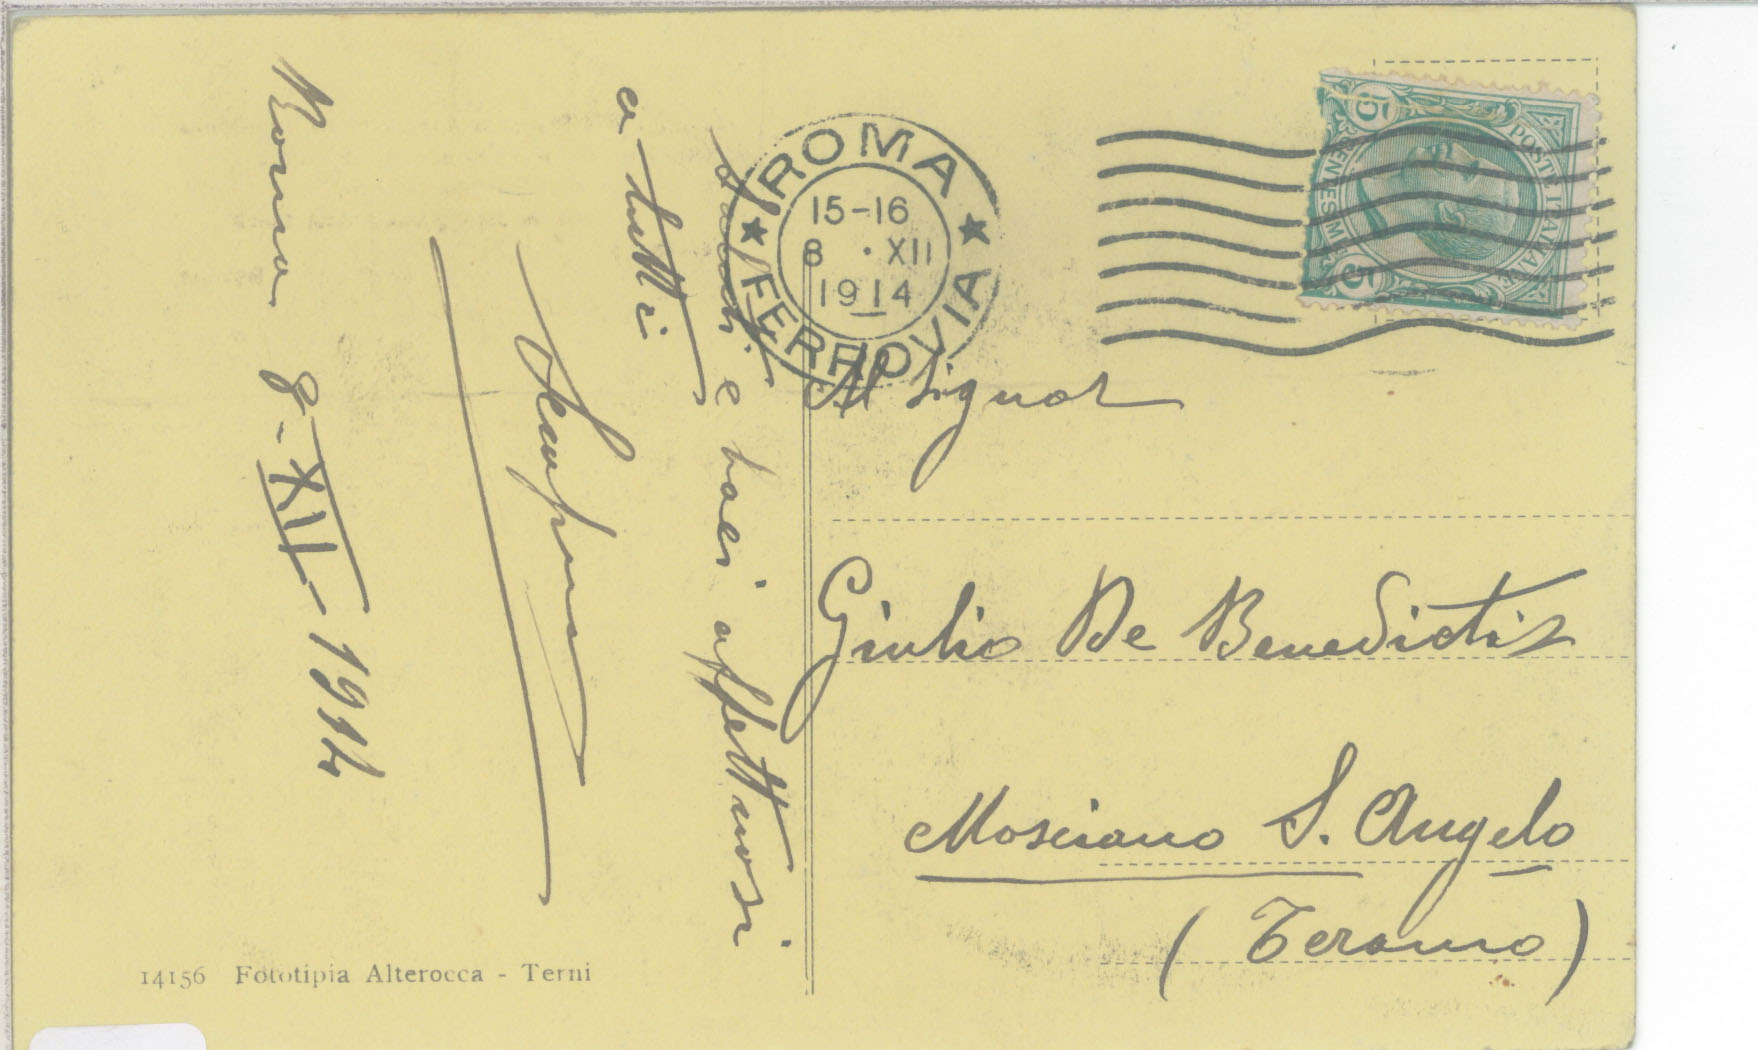 Saluti e baci affettuosi
a tutti
Roma 8-XII-1914
14156 Fototipia Alterocca - Terni
ROMA
15-16
8 · XII
1914
FERROVIA
POSTE ITALIANE
5
5
Al Signor
Giulio De Benedictis
Mosciano S. Angelo
(Teramo)